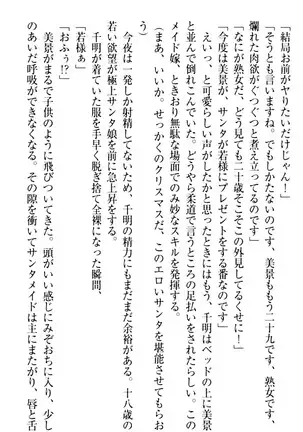 「結局お前がヤりたいだけじゃん！」
「そうとも言いますね。でもしかたないのです。美景ももう二十九です、熟女です、
爛れた肉欲がぐつぐつと煮え立ってるのです」
「なにが熟女だ、どう見ても二十歳そこそこの外見してるくせに！」
「今度は美景が、サンタが若様にプレゼントをする番なのです」
えいっ、と可愛らしい声がしたかと思ったときにはもう、千明はベッドの上に美景
と並んで倒れこんでいた。どうやら柔道で言うところの足払いをされたらしい。この
メイド嫁、ときおり無駄な場面でのみ妙なスキルを発揮する。
（まあ、いいか。せっかくのクリスマスだ、このエロいサンタを堪能させてもらお
う）
今夜は一発しか射精してないため、千明の精力にもまだまだ余裕がある。十八歳の
若い欲望が極上サンタ娘を前に急上昇をする。
千明が着ていた服を手早く脱ぎ捨て全裸になった瞬間、
「若様ぁ」
「おふぅ!?」
美景がまるで子供のように飛びついてきた。頭がいい感じにみぞおちに入り、少し
のあいだ呼吸ができなくなる。その隙を衝いてサンタメイドは主にまたがり、唇と舌